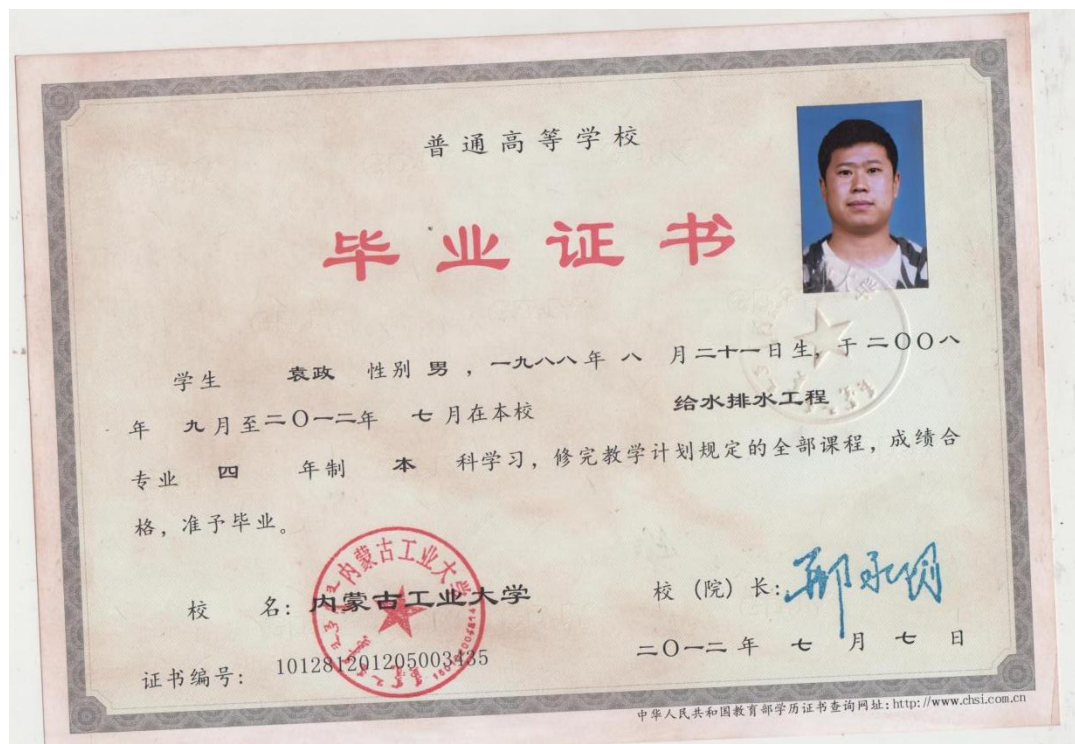 普通高等学校
毕业证书
学生 袁政 性别 男 ，一九八八年 八 月二十一日生，于二〇〇八
年 九月至二〇一二年 七月在本校 给水排水工程
专业 四 年制 本 科学习，修完教学计划规定的全部课程，成绩合
格，准予毕业。
内蒙古工业大学
校 名：内蒙古工业大学
校（院）长：
二〇一二 年 七 月 七 日
证书编号：101281201205003435
中华人民共和国教育部学历证书查询网址：http://www.chsi.com.cn